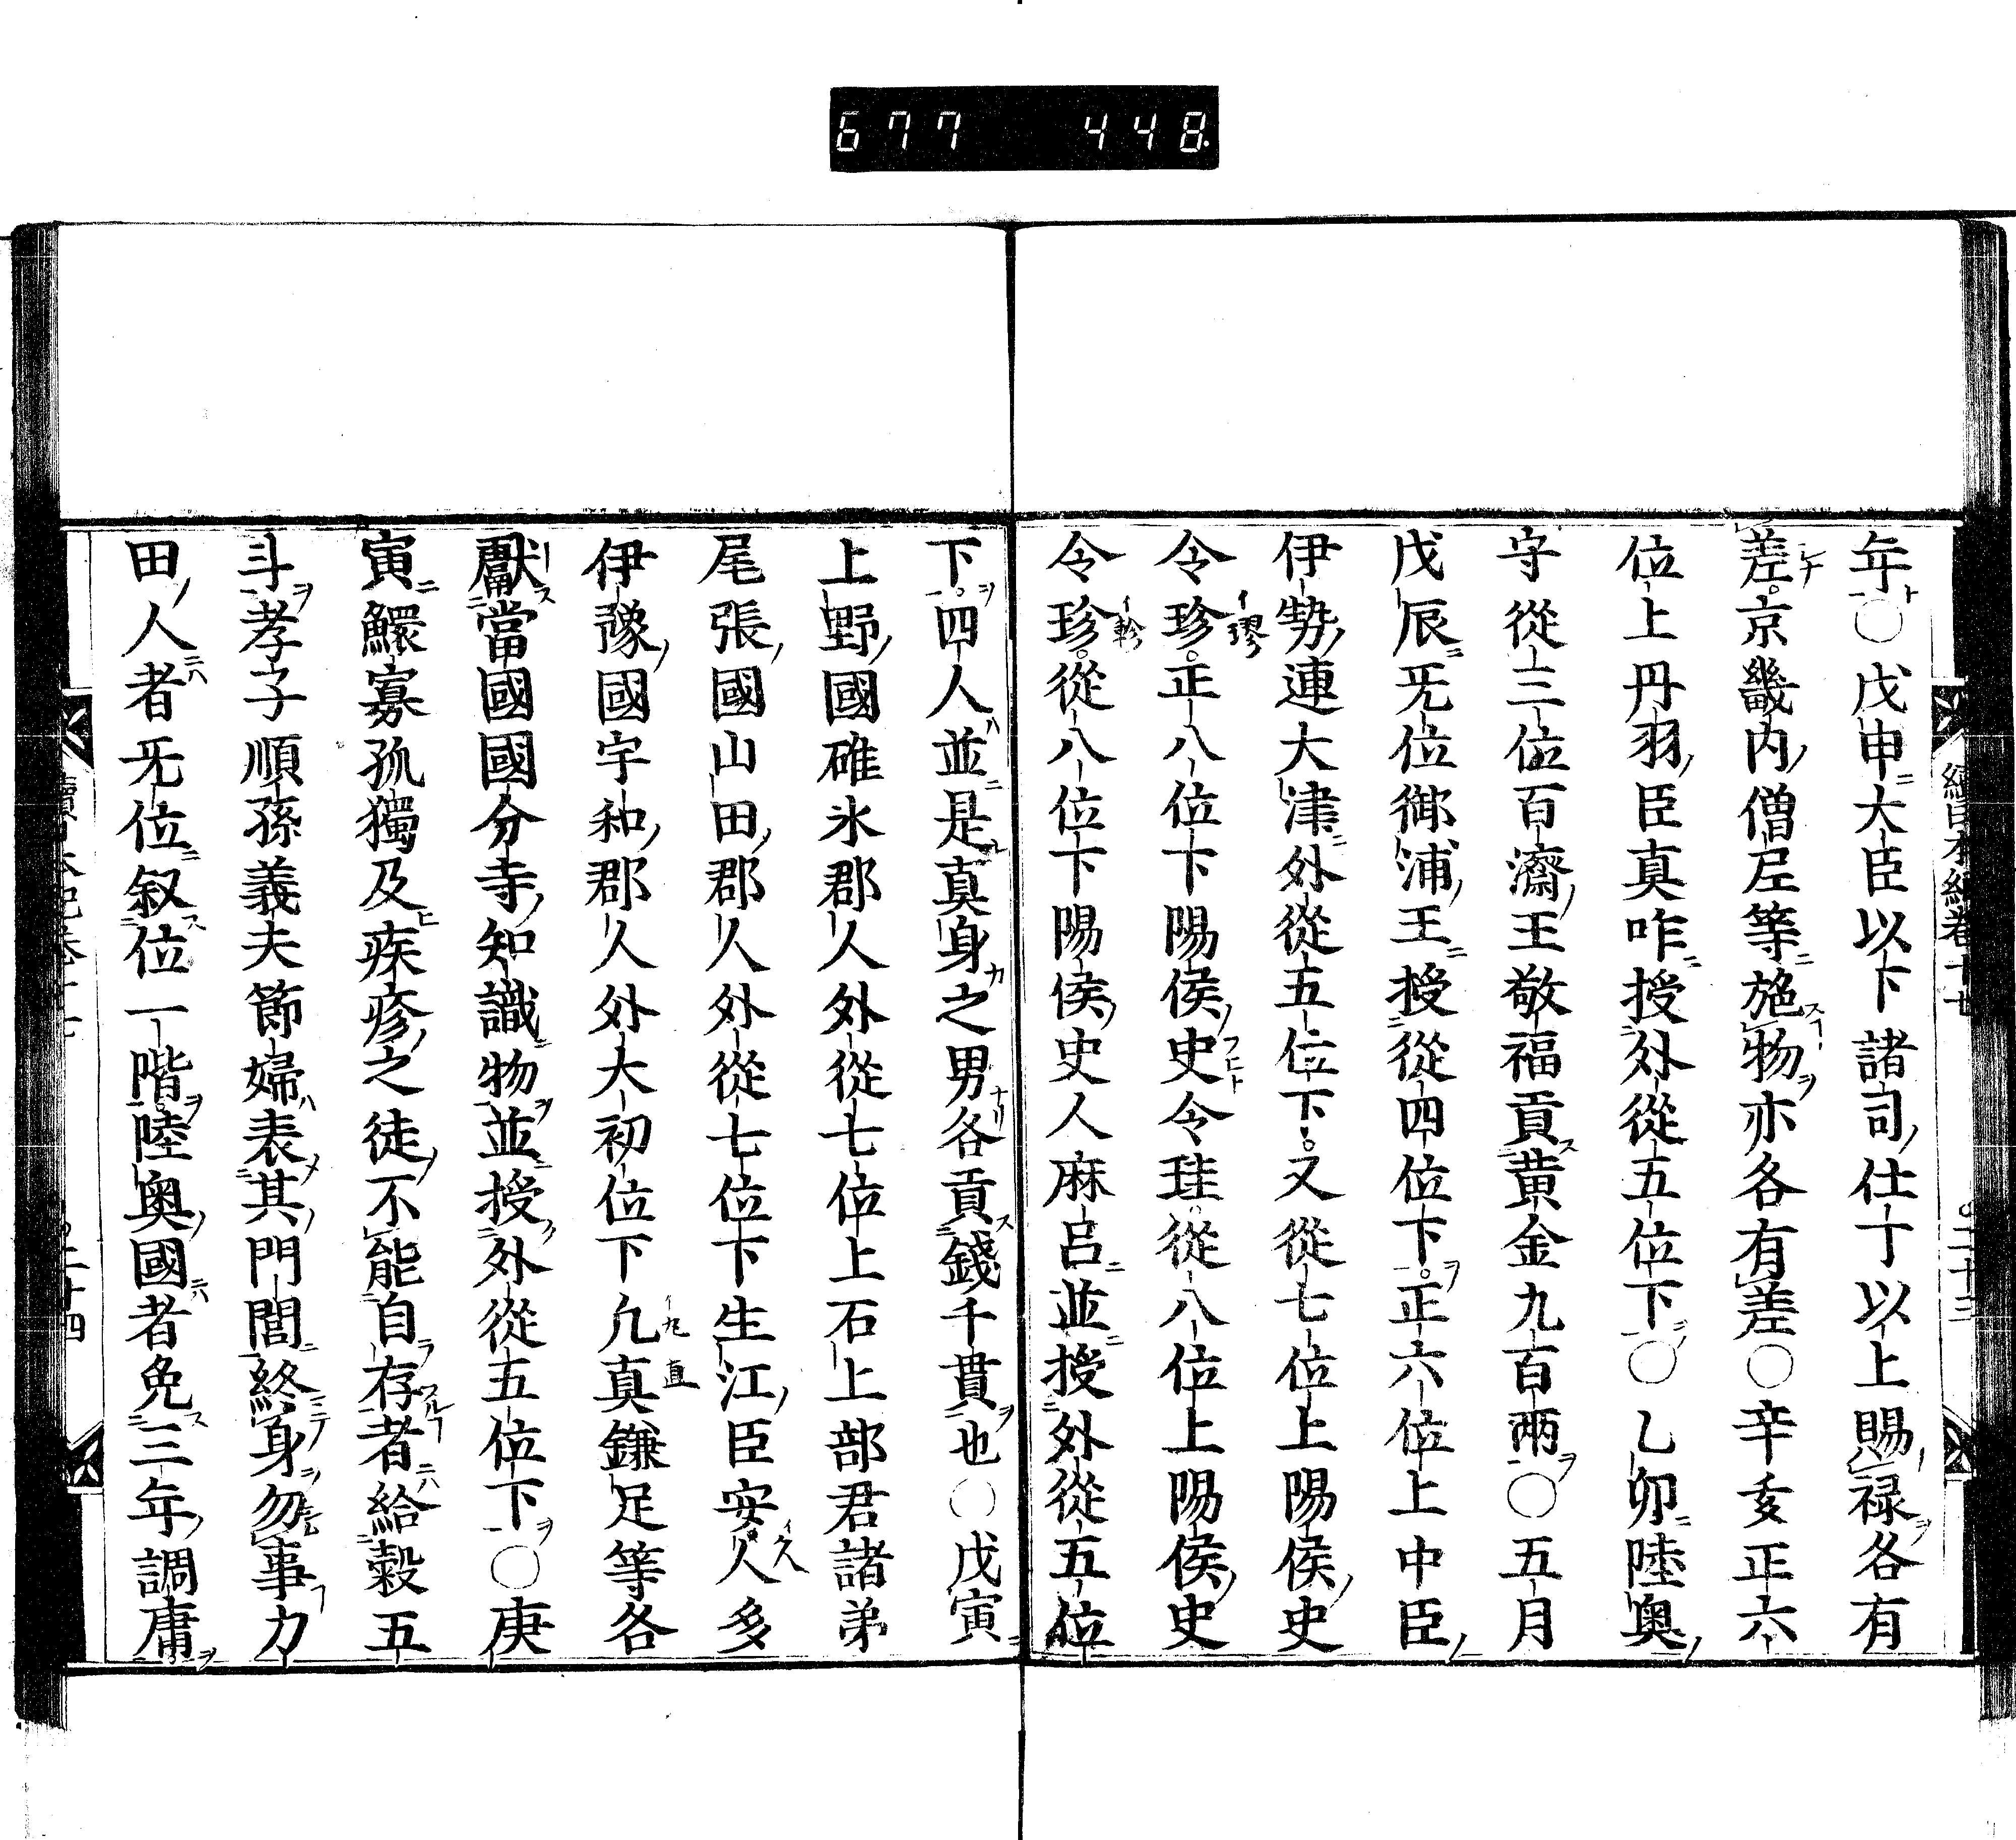 677 448.
年○戊申大臣以下諸司仕丁以上賜祿各有
差京畿内僧尼等施物亦各有差○辛亥正六
位上丹羽臣真咋授外從五位下○乙卯陸奥
守從三位百濟王敬福貢黄金九百兩○五月
戊辰无位御浦王授從四位下正六位上中臣
伊勢連大津外從五位下又從七位上陽侯史
令珍正八位下陽侯史令珪從八位上陽侯史
令珍從八位下陽侯史人麻呂並授外從五位
下四人並是真身之男各貢錢千貫也○戊寅
上野國碓氷郡人外從七位上石上部君諸弟
尾張國山田郡人外從七位下生江臣安人多
伊豫國宇和郡人外大初位下凡真鎌足等各
獻當國國分寺知識物並授外從五位下○庚
寅鰥寡孤獨及疾疹之徒不能自存者給穀五
斗孝子順孫義夫節婦表其門閭終身勿事力
田人者无位叙位一階陸奥國者免三年調庸